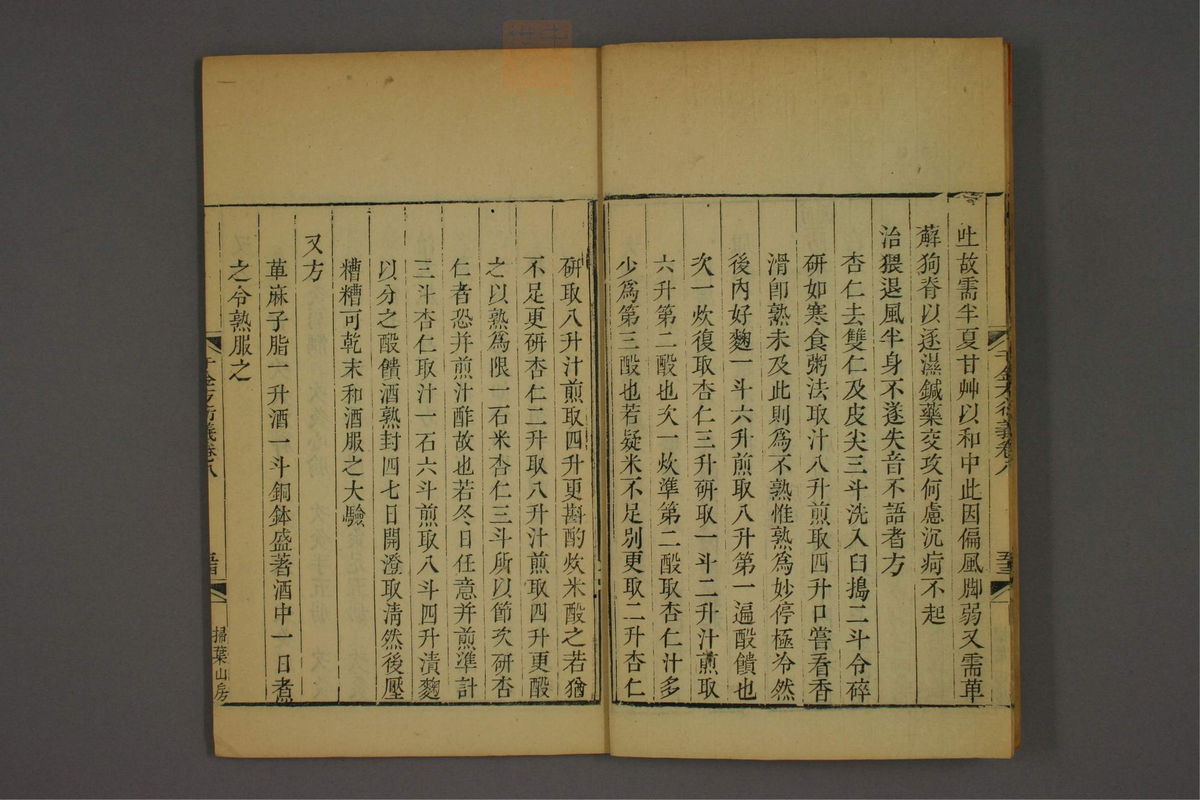 吐故需半夏甘艸以和中此因偏風脚弱又需萆
薢狗脊以逐濕鍼藥交攻何慮沉痾不起
治猥退風半身不遂失音不語者方
杏仁去雙仁及皮尖三斗洗入臼搗二斗令碎
研如寒食粥法取汁八升煎取四升口嘗看香
滑卽熟未及此則爲不熟惟熟爲妙停極冷然
後內好麴一斗六升煎取八升第一遍酘饙也
次一炊復取杏仁三升研取一斗二升汁煎取
六升第二酘也次一炊準第二酘取杏仁汁多
少爲第三酘也若疑米不足別更取二升杏仁
研取八升汁煎取四升更斟酌炊米酘之若猶
不足更研杏仁二升取八升汁煎取四升更酘
之以熟爲限一石米杏仁三斗所以節次研杏
仁者恐并煎汁酢故也若冬日任意并煎準計
三斗杏仁取汁一石六斗煎取八斗四升漬麴
以分之酘饙酒熟封四七日開澄取清然後壓
糟糟可乾末和酒服之大驗
又方
萆麻子脂一升酒一斗銅鉢盛著酒中一日煮
之令熟服之
千金方衍義卷八
掃葉山房